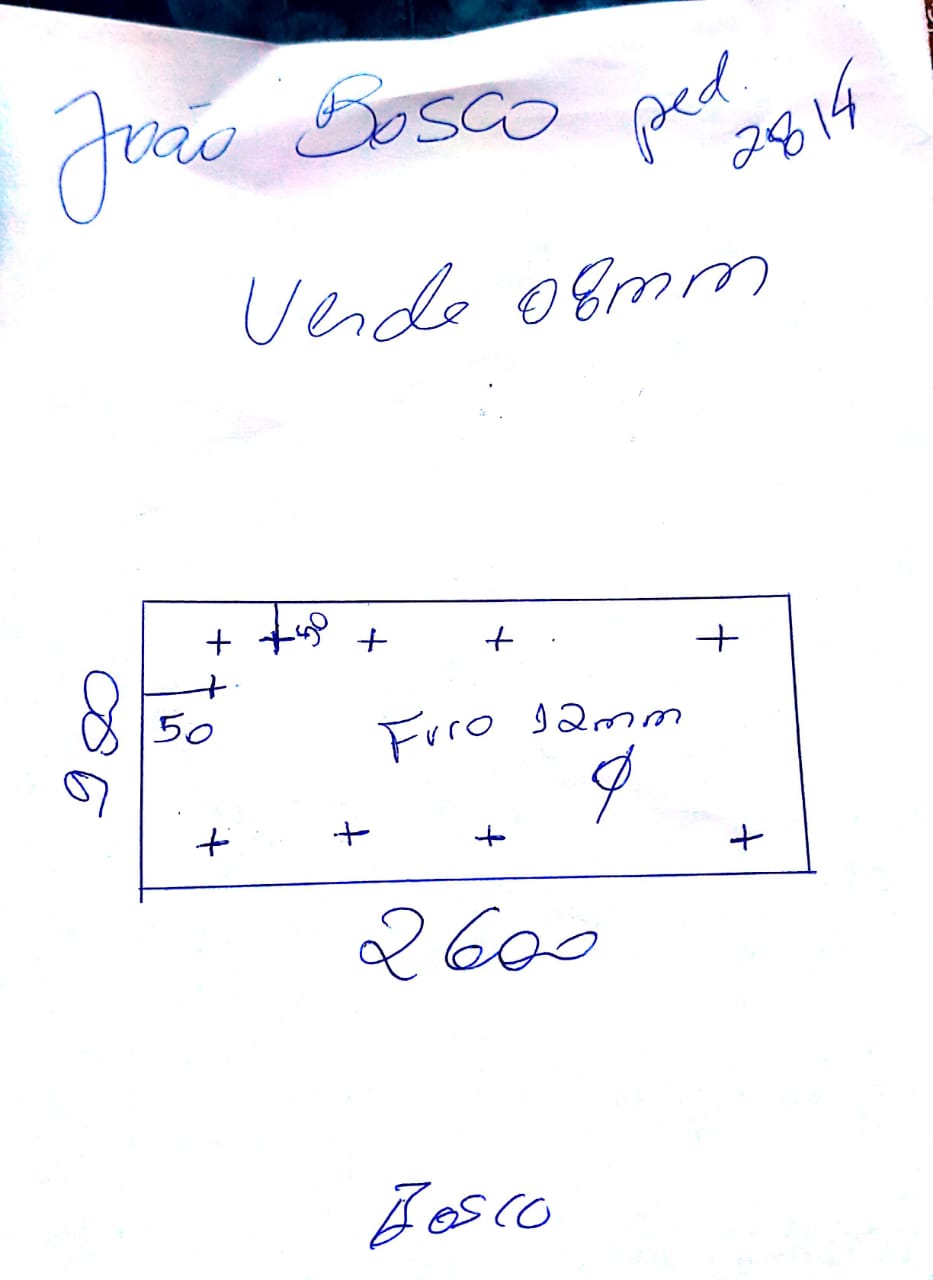 João Bosco ped.
2814
Verde 08mm
50
980
50
Furo 12mm
φ
2600
Bosco